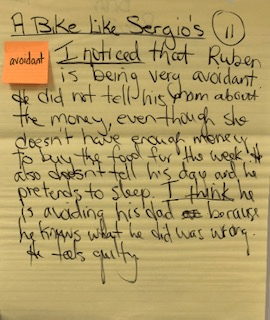 A Bike like Sergio's 11
avoidant
I noticed that Ruben
is being very avoidant
He did not tell his mom about
the money, even though she
doesn't have enough money
to buy the food for the week. He
also doesn't tell his day and he
pretends to sleep. I think he
is avoiding his dad because
he knows what he did was wrong.
He feels guilty